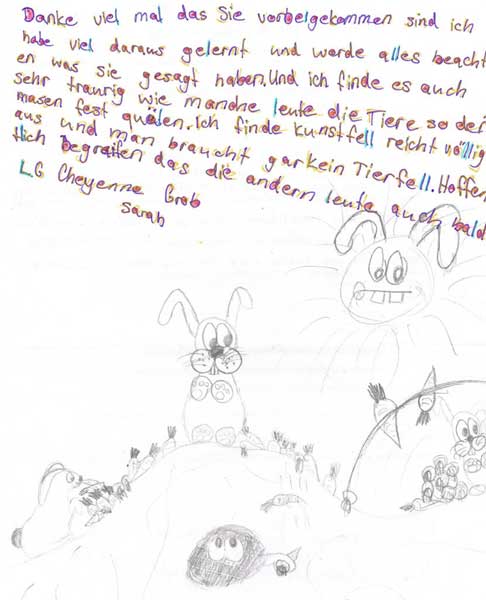 Danke viel mal das Sie vorbeigekommen sind ich
habe viel daraus gelernt und werde alles beacht
en was sie gesagt haben. Und ich finde es auch
sehr traurig wie manche leute die Tiere so der
masen fest quälen. Ich finde kunstfell reicht völlig
aus und man braucht garkein Tierfell. Hoffen
tlich begreifen das die andern leute auch bald
LG Cheyenne Grob
Sarah